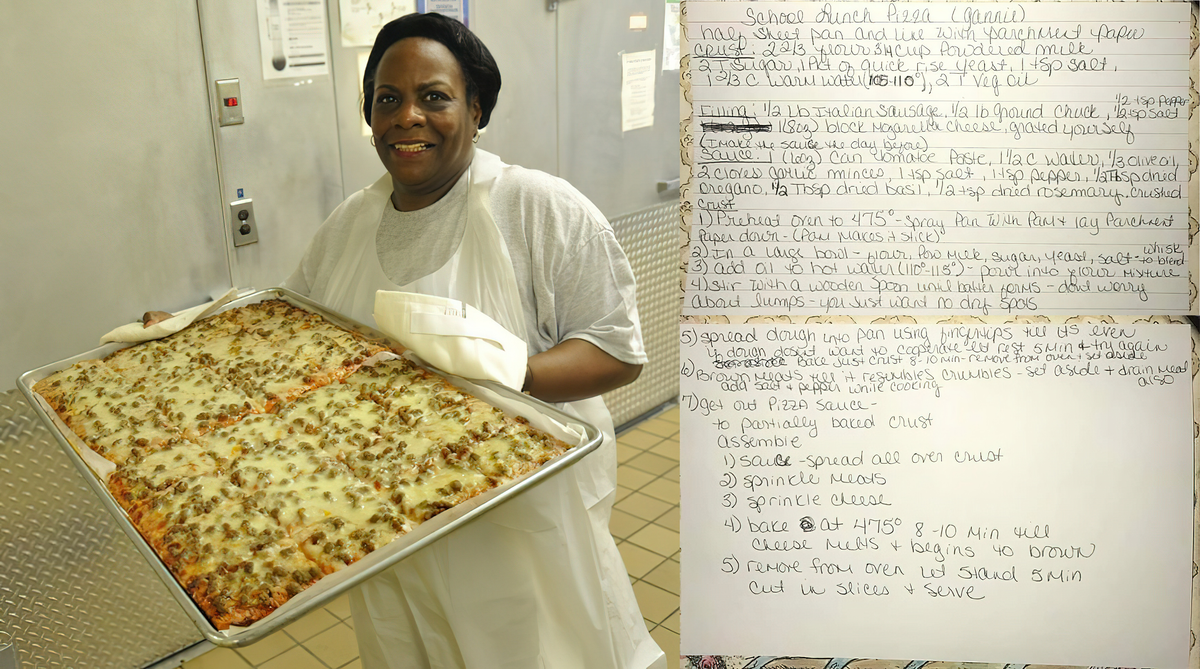 School Lunch Pizza (Gannie)
half sheet pan and line with parchment paper
crust: 2 2/3 flour 3/4 cup Powdered milk
2 T Sugar, 1 Pkt of quick rise yeast, 1 tsp salt,
1 2/3 C warm water (105-110°), 2 T Veg oil
1/2 tsp pepper
Filling: 1/2 Lb Italian Sausage, 1/2 lb ground chuck, 1/2 tsp salt
1 (8oz) block mozarella cheese, grated yourself
(I make the sauce the day before)
Sauce: 1 (6oz) can tomatoe paste, 1 1/2 C water, 1/3 olive oil,
2 cloves garlic minces, 1 tsp salt, 1 tsp pepper, 1/2 Tbsp dried
oregano, 1/2 Tbsp dried basil, 1/2 tsp dried rosemary, crushed
Crust
1) Preheat oven to 475° - Spray Pan with Pam & lay Parchment
Paper down - (Pam makes it stick)
2) In a large bowl - flour, Pow Milk, sugar, yeast, salt - whisk to blend
3) add oil to hot water (110°-115°) - pour into flour mixture
4) stir with a wooden spoon until batter forms - dont worry
about lumps - you just want no dry spots
5) spread dough into pan using fingertips till its even
if dough doesnt want to cooperate let rest 5 min & try again
Bake just crust 8-10 min - remove from oven & set aside
6) Brown meats till it resumbles crumbles - set aside & drain meat
add salt & pepper while cooking also
7) get out Pizza sauce -
to partially baked crust
assemble
1) sauce - spread all over crust
2) sprinkle meats
3) sprinkle cheese
4) bake at 475° 8-10 min till
cheese melts & begins to brown
5) remove from oven let stand 5 min
cut in slices & serve